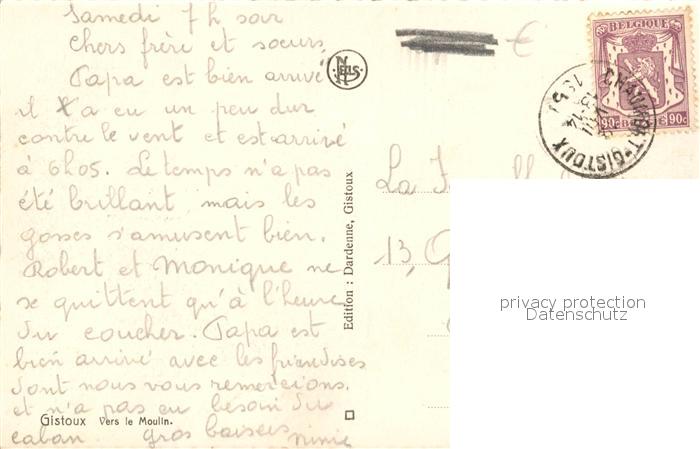 Samedi 7h soir
Chers frère et soeurs,
Papa est bien arrivé
il a eu un peu dur
contre le vent et est arrivé
à 6h05. Le temps n'a pas
été brillant, mais les
gosses s'amusent bien.
Robert et Monique ne
se quittent qu'à l'heure
du coucher. Papa est
bien arrivé avec les friandises
dont nous vous remercions.
et n'a pas eu besoin du
caban. gros baisers ninie
Gistoux Vers le Moulin.
NELS
Edition : Dardenne, Gistoux
€
BELGIQUE
90c 90c
CHAUMONT-GISTOUX
La
13,
privacy protection
Datenschutz